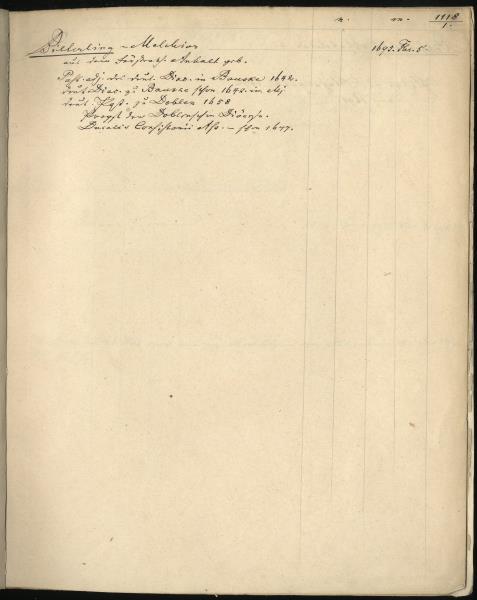 n. m. 1118
1.
Bitterling - Melchior 1695. Febr. 5.
aus dem Fürstenth. Anhalt geb.
Past. adj. des deut. Diac. in Bauske 1642.
deut. Diac. zu Bauske schon 1642. im Maj
deut. Past. zu Doblen 1658
Propst der Doblenschen Diöcese.
Ducalis Consistorii Ass. - schon 1677.